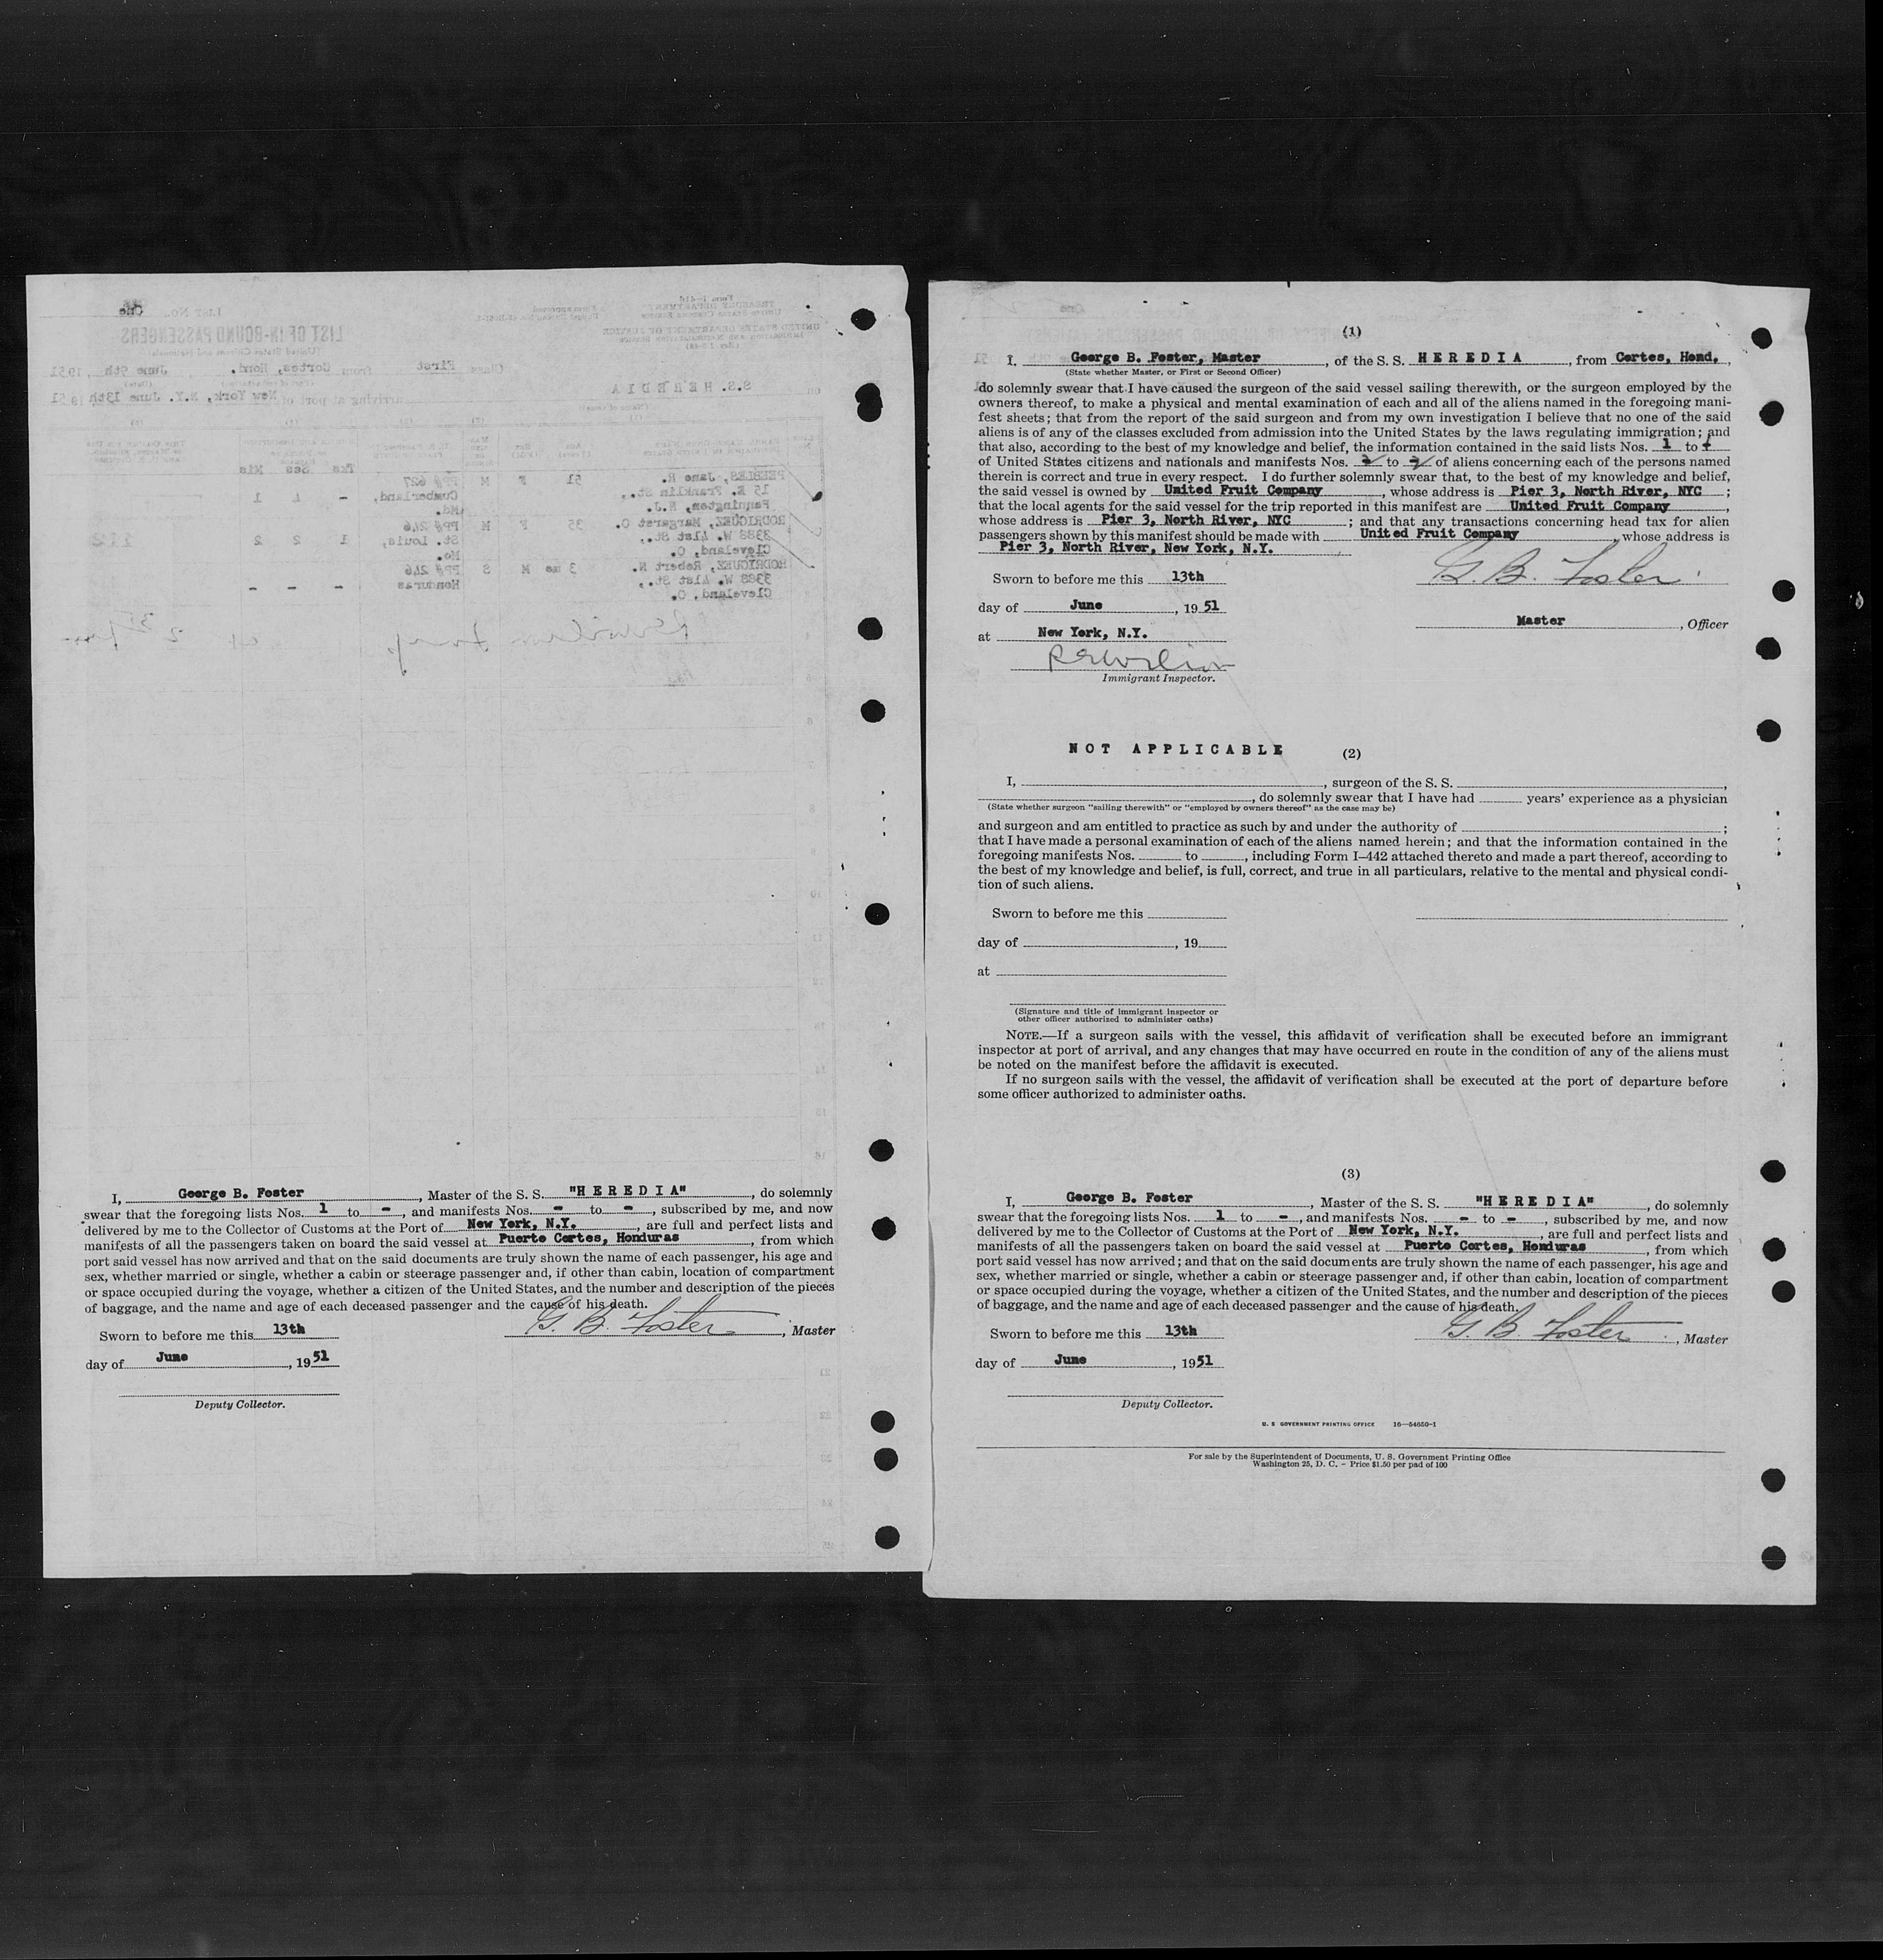 List No. One
LIST OF IN-BOUND PASSENGERS
(United States Citizens and Nationals)
Form I-416
TREASURY DEPARTMENT
UNITED STATES CUSTOMS SERVICE
UNITED STATES DEPARTMENT OF JUSTICE
IMMIGRATION AND NATURALIZATION SERVICE
Class First from Cortes, Hond. , June 9th , 1951
on S.S. H E R E D I A arriving at port of New York, N.Y. June 13th , 1951
Pks Ses Mis
PEEBLES, Jane R. 51 F M PP# 627
15 E. Franklin St., Cumberland, - 4 1
Pennington, N.J. Md.
RODRIGUEZ, Margaret O. 35 F M PP# 246
3388 W. 41st St., St. Louis, 1 2 2
Cleveland, O. Mo.
RODRIGUEZ, Robert N. 3 mo M S PP# 246
3388 W. 41st St., Honduras - - -
Cleveland, O.
I, George B. Foster , Master of the S. S. "H E R E D I A" , do solemnly
swear that the foregoing lists Nos. 1 to - , and manifests Nos. - to - , subscribed by me, and now
delivered by me to the Collector of Customs at the Port of New York, N.Y. , are full and perfect lists and
manifests of all the passengers taken on board the said vessel at Puerto Cortes, Honduras , from which
port said vessel has now arrived and that on the said documents are truly shown the name of each passenger, his age and
sex, whether married or single, whether a cabin or steerage passenger and, if other than cabin, location of compartment
or space occupied during the voyage, whether a citizen of the United States, and the number and description of the pieces
of baggage, and the name and age of each deceased passenger and the cause of his death.
Sworn to before me this 13th G. B. Foster , Master
day of June , 19 51
Deputy Collector.
(1)
I, George B. Foster, Master , of the S. S. H E R E D I A , from Cortes, Hond. ,
(State whether Master, or First or Second Officer)
do solemnly swear that I have caused the surgeon of the said vessel sailing therewith, or the surgeon employed by the
owners thereof, to make a physical and mental examination of each and all of the aliens named in the foregoing mani-
fest sheets; that from the report of the said surgeon and from my own investigation I believe that no one of the said
aliens is of any of the classes excluded from admission into the United States by the laws regulating immigration; and
that also, according to the best of my knowledge and belief, the information contained in the said lists Nos. 1 to
of United States citizens and nationals and manifests Nos. to of aliens concerning each of the persons named
therein is correct and true in every respect. I do further solemnly swear that, to the best of my knowledge and belief,
the said vessel is owned by United Fruit Company , whose address is Pier 3, North River, NYC ;
that the local agents for the said vessel for the trip reported in this manifest are United Fruit Company ,
whose address is Pier 3, North River, NYC ; and that any transactions concerning head tax for alien
passengers shown by this manifest should be made with United Fruit Company , whose address is
Pier 3, North River, New York, N.Y.
Sworn to before me this 13th G. B. Foster
day of June , 19 51
Master , Officer
at New York, N.Y.
Immigrant Inspector.
NOT APPLICABLE (2)
I, , surgeon of the S. S. ,
, do solemnly swear that I have had years' experience as a physician
(State whether surgeon "sailing therewith" or "employed by owners thereof" as the case may be)
and surgeon and am entitled to practice as such by and under the authority of ;
that I have made a personal examination of each of the aliens named herein; and that the information contained in the
foregoing manifests Nos. to , including Form I–442 attached thereto and made a part thereof, according to
the best of my knowledge and belief, is full, correct, and true in all particulars, relative to the mental and physical condi-
tion of such aliens.
Sworn to before me this
day of , 19
at
(Signature and title of immigrant inspector or
other officer authorized to administer oaths)
NOTE.—If a surgeon sails with the vessel, this affidavit of verification shall be executed before an immigrant
inspector at port of arrival, and any changes that may have occurred en route in the condition of any of the aliens must
be noted on the manifest before the affidavit is executed.
If no surgeon sails with the vessel, the affidavit of verification shall be executed at the port of departure before
some officer authorized to administer oaths.
(3)
I, George B. Foster , Master of the S. S. "H E R E D I A" , do solemnly
swear that the foregoing lists Nos. 1 to - , and manifests Nos. - to - , subscribed by me, and now
delivered by me to the Collector of Customs at the Port of New York, N.Y. , are full and perfect lists and
manifests of all the passengers taken on board the said vessel at Puerto Cortes, Honduras , from which
port said vessel has now arrived; and that on the said documents are truly shown the name of each passenger, his age and
sex, whether married or single, whether a cabin or steerage passenger and, if other than cabin, location of compartment
or space occupied during the voyage, whether a citizen of the United States, and the number and description of the pieces
of baggage, and the name and age of each deceased passenger and the cause of his death.
Sworn to before me this 13th G. B. Foster , Master
day of June , 1951
Deputy Collector.
U. S. GOVERNMENT PRINTING OFFICE 16—54650-1
For sale by the Superintendent of Documents, U. S. Government Printing Office
Washington 25, D. C. - Price $1.50 per pad of 100